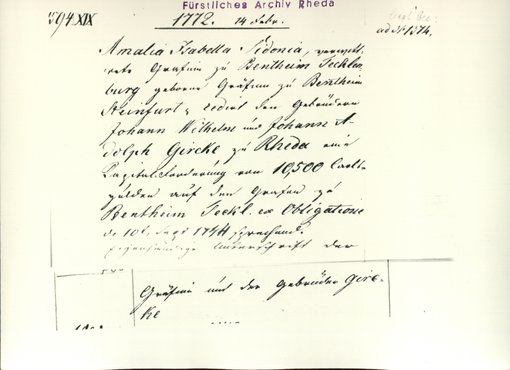 Fürstliches Archiv Rheda
394 XIX
1772. 14 Febr.
ad N 1374.
Amalia Isabella Sidonia, verwitt-
wete Gräfinn zu Bentheim Tecklen-
burg geborne Gräfinn zu Bentheim
Steinfurt, cedirt den Gebrüdern
Johann Wilhelm und Johann A-
dolph Gircke zu Rheda eine
Capital-forderung von 10,500 
gülden auf den Grafen zu
Bentheim Teckl. ex Obligatione
de 10t 1744 sprechend.
eigenhändige Unterschrift der
Gräfinn und der Gebrüder Gire-
ke